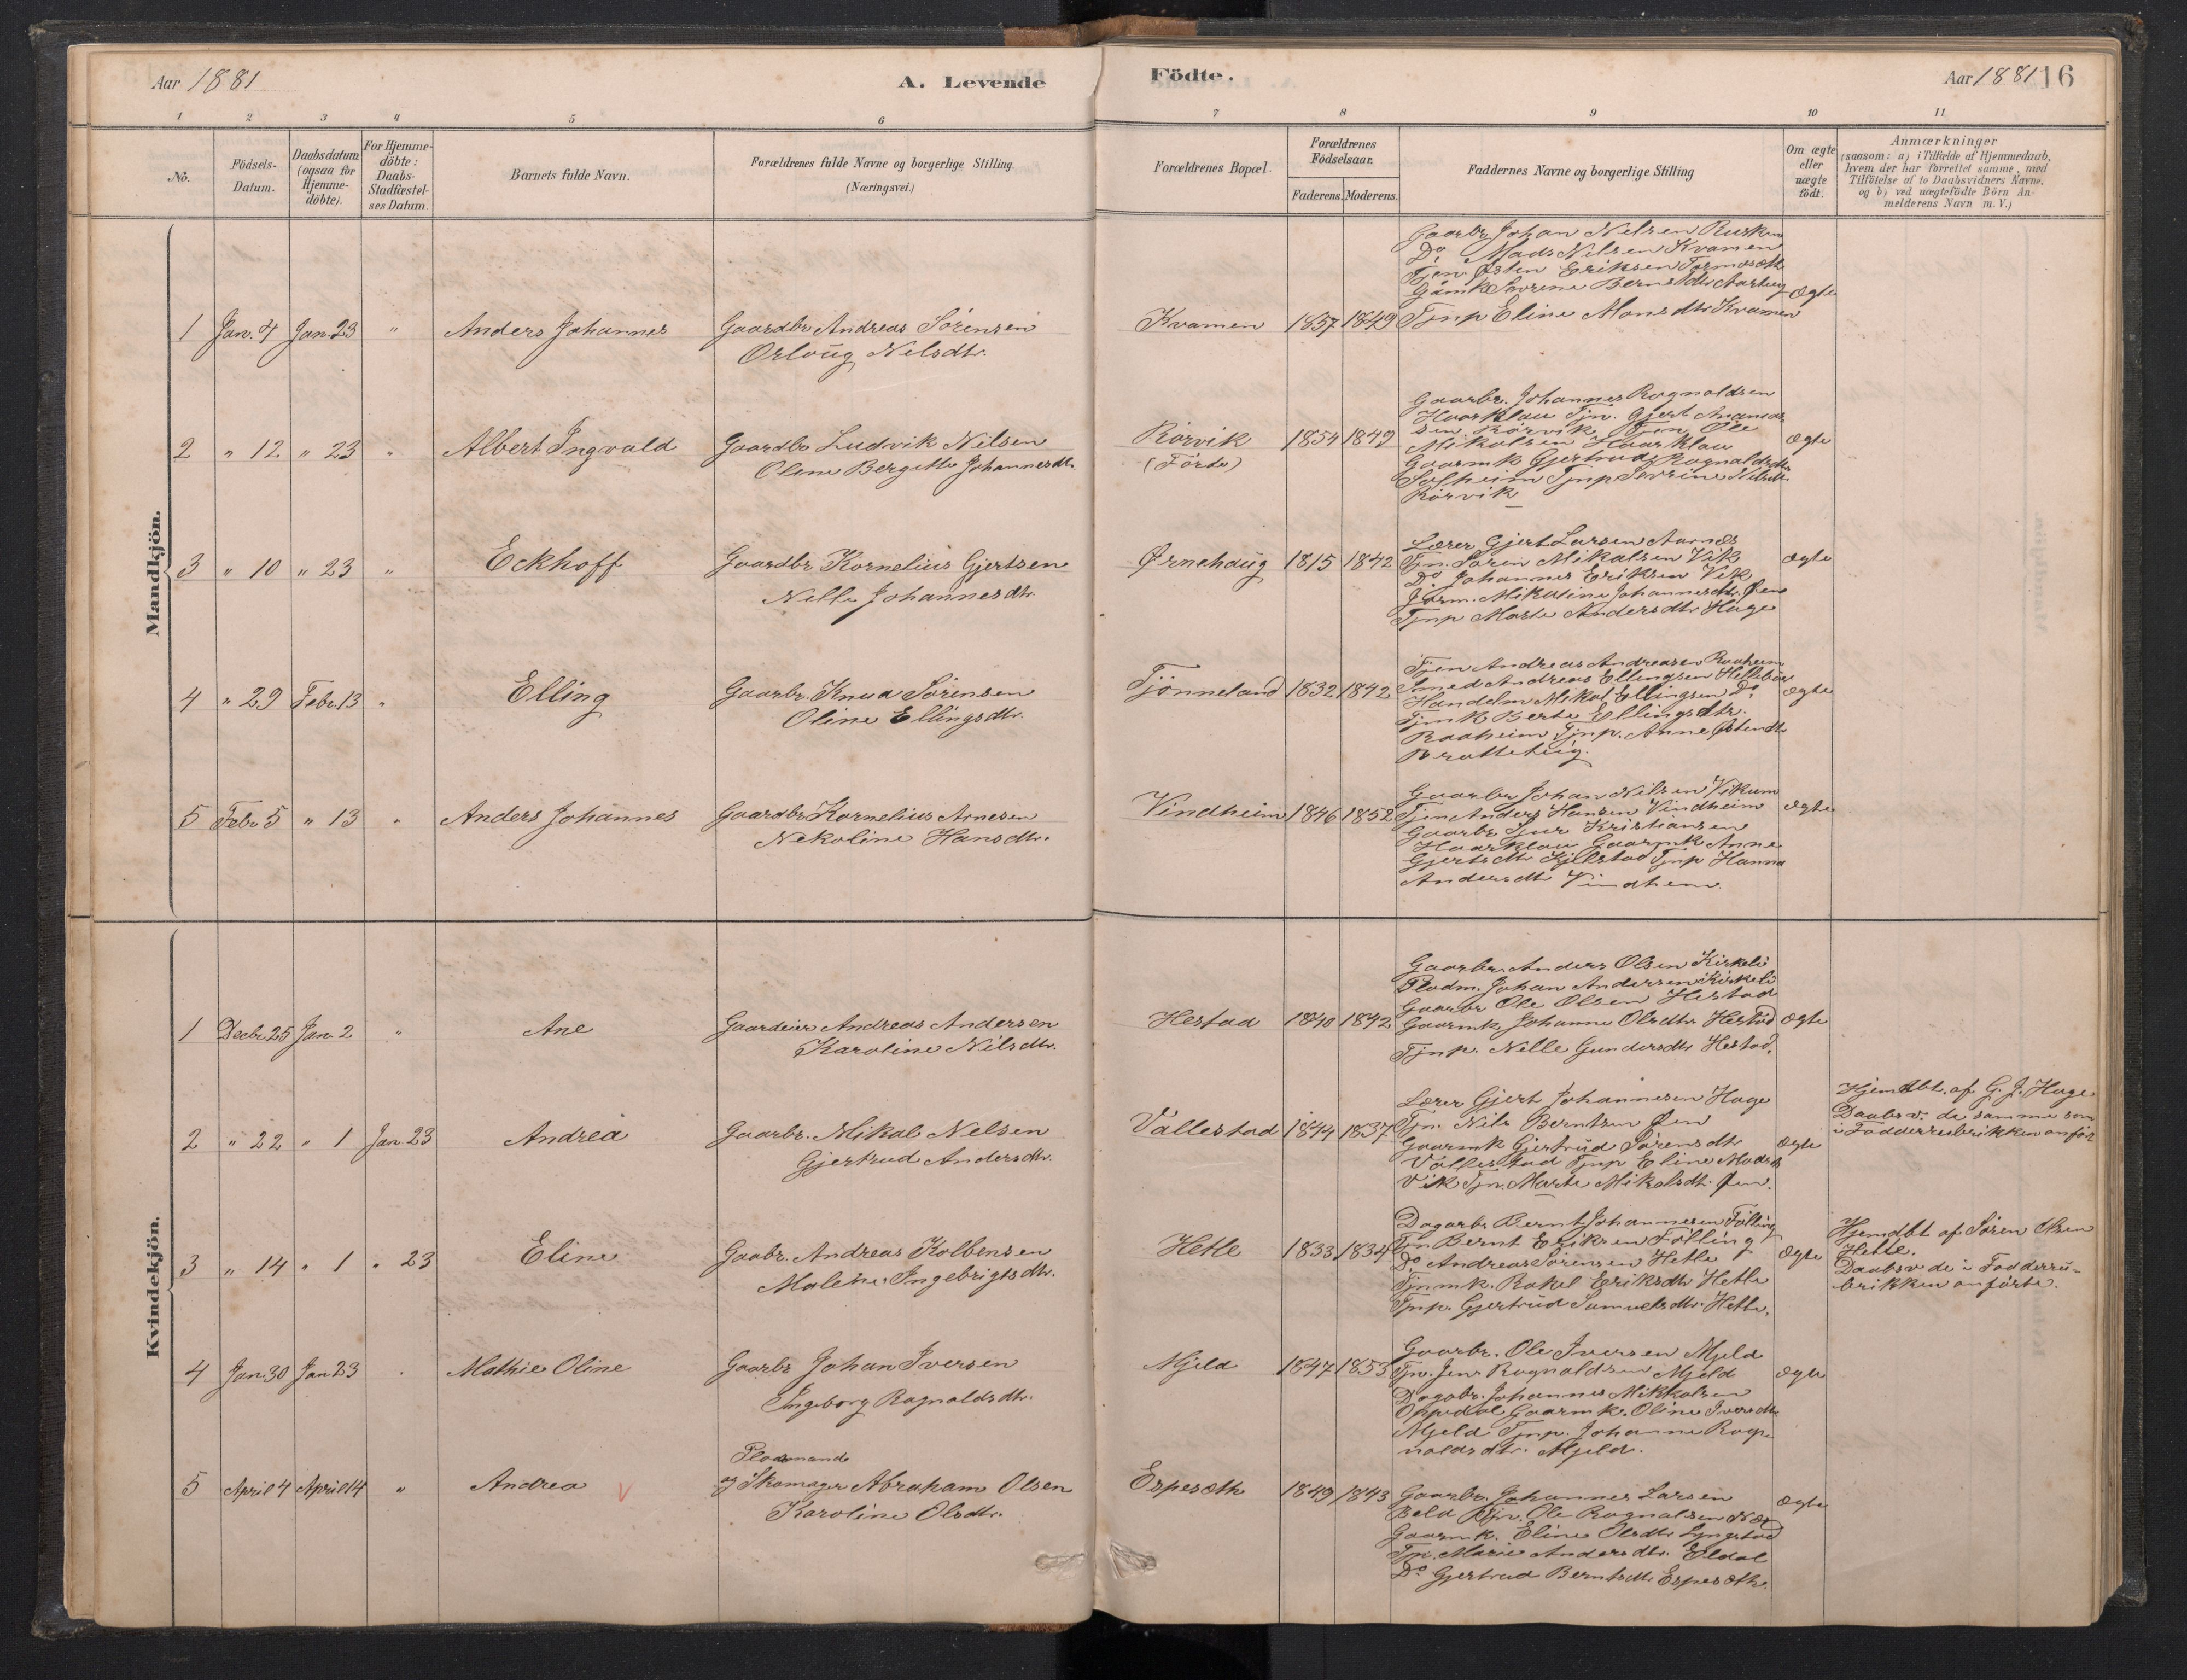 Aar 1881
A. Levende
Födte.
Aar 1881 16
1 2 3 4 5 6 7 8 9 10 11
No.
Födsels-
Datum.
Daabsdatum
(ogsaa for
Hjemme-
döbte).
For Hjemme-
döbte:
Daabs-
Stadfæstel-
ses Datum.
Barnets fulde Navn.
Forældrenes fulde Navne og borgerlige Stilling.
(Næringsvei.)
Forældrenes Bopæl.
Forældrenes
Födselsaar.
Faderens. Moderens.
Faddernes Navne og borgerlige Stilling
Om ægte
eller
uægte
födt.
Anmærkninger
(saasom: a) i Tilfælde af Hjemmedaab,
hvem der har forrettet samme, med
Tilföielse af to Daabsvidners Navne,
og b) ved uægtefödte Börn An-
melderens Navn m. V.)
Mandkjön.
1 Jan. 4 Jan 23 " Anders Johannes
Gaardbr Andreas Sörensen
Orloug Nelsdtr.
Kvamen 1857 1849
Gaarbr Johan Nilsen
Do Mads Nilsen Kvamen
Tjen. Østen Eriksen
Tjnp Eline Monsdtr Kvamen
ægte
2 " 12 " 23 " Albert Ingvald
Gaardbr Ludvik Nilsen
Oline Bergitte Johannesdtr.
Rörvik
(Förde)
1854 1849
Gaarbr. Johannes Ragnaldsen
Haarklau Tjn. Gjert
sen Rörvik Tjen Ole
Mikalsen Haarklau
Gaarmk Gjertrud Ragnaldsdtr
Solheim Tjnp Sevrine Nilsdtr.
Rörvik
ægte
3 " 10 " 23 " Eckhoff
Gaardbr Kornelius Gjertsen
Nille Johannesdtr.
Ørnehaug 1815 1842
Lærer Gjert Larsen Aarnes
Tjn. Sören Mikalsen Vik
Do Johannes Eriksen Vik
Mikaline Johannesdtr. Øen
Tjnp Marte Andersdtr Hage
ægte
4 " 29 Febr. 13 " Elling
Gaarbr. Knud Sörensen
Oline Ellingsdtr.
Tjönneland 1832 1842
Tjen Andreas Andreasen Raaheim
Smed Andreas Ellingsen
Handelm Mikal Ellingsen Do
Berte Ellingsdtr.
Raaheim Tjnp. Anne Østendtr
Brattehug.
ægte
5 Febr 5 " 13 " Anders Johannes
Gaardbr Kornelius Arnesen
Nekoline Hansdtr.
Vindheim 1846 1852
Gaarbr Johan Nilsen Vikum
Tjen Anders Hansen Vindheim
Gaarbr Sjur Kristiansen
Haarklau Gaarmk Anne
Gjertsdtr Kjelstad Tjnp Hanna
Andersdtr Vindhem.
ægte
Kvindekjön.
1 Decbr 25 Jan 2 " Ane
Gaardeier Andreas Andersen
Karoline Nilsdtr.
Hestad 1840 1842
Gaarbr. Anders Olsen Kirkeli
Pladm. Johan Andersen Kirkeli
Gaarbr Ole Olsen Hestad
Gaarmk Johanne Olsdtr Hestad
Tjnp. Nelle Gundersdtr Hestad.
ægte
2 " 22 " 1 Jan 23 Andrea
Gaarbr. Mikal Nelsen
Gjertrud Andersdtr.
Vallestad 1844 1837
Lærer Gjert Johannesen Hage
Tjn. Nils Berntsen Øen
Gaarmk Gjertrud Sörensdtr
Vallestad Tjnp Eline Madsd
Vik Tjn. Marte Mikalsdtr. Øen.
ægte
Hjemdbt. af G. J. Hage
Daabsv. de samme som
i Fadderrubrikken anför
3 " 14 " 1 " 23 Eline
Gaabr. Andreas Kolbensen
Malene Ingebrigtsdtr.
Hetle 1833 1834
Dagarbr Bernt Johannesen Fölling
Tjn Bernt Eriksen Fölling
Do Andreas Sörensen Hetle
Tjnmk. Rakel Eriksdtr Hetle
Tjnp. Gjertrud Samuelsdtr. Hetle.
ægte
Hjemdbt af Sören Olsen
Hetle.
Daabsv de i Fadderru-
brikken anförte.
4 Jan 30 Jan 23 . Mathie Oline
Gaarbr Johan Iversen
Ingeborg Ragnaldsdtr.
Mjeld 1847 1853
Gaarbr. Ole Iversen Mjeld
Tjn. Jens Ragnaldsen Mjeld
Dagabr. Johannes Mikkalsen
Oppedal Gaarmk. Oline Iversdtr
Mjeld Tjnp. Johanne Rag-
naldsdtr. Mjeld.
ægte
5 April 4 April 14 " Andrea V
Pladsmand
og Skomager Abraham Olsen
Karoline Olsdtr.
Espesæth 1849 1843
Gaarbr Johannes Larsen
Beld Tjn. Ole Ragnalsen
Gaarmk. Eline Olsdtr Lyngstad
Tjn. Marie Andersdtr. Eldal
Do Gjertrud Berntsdtr Espesæth.
ægte